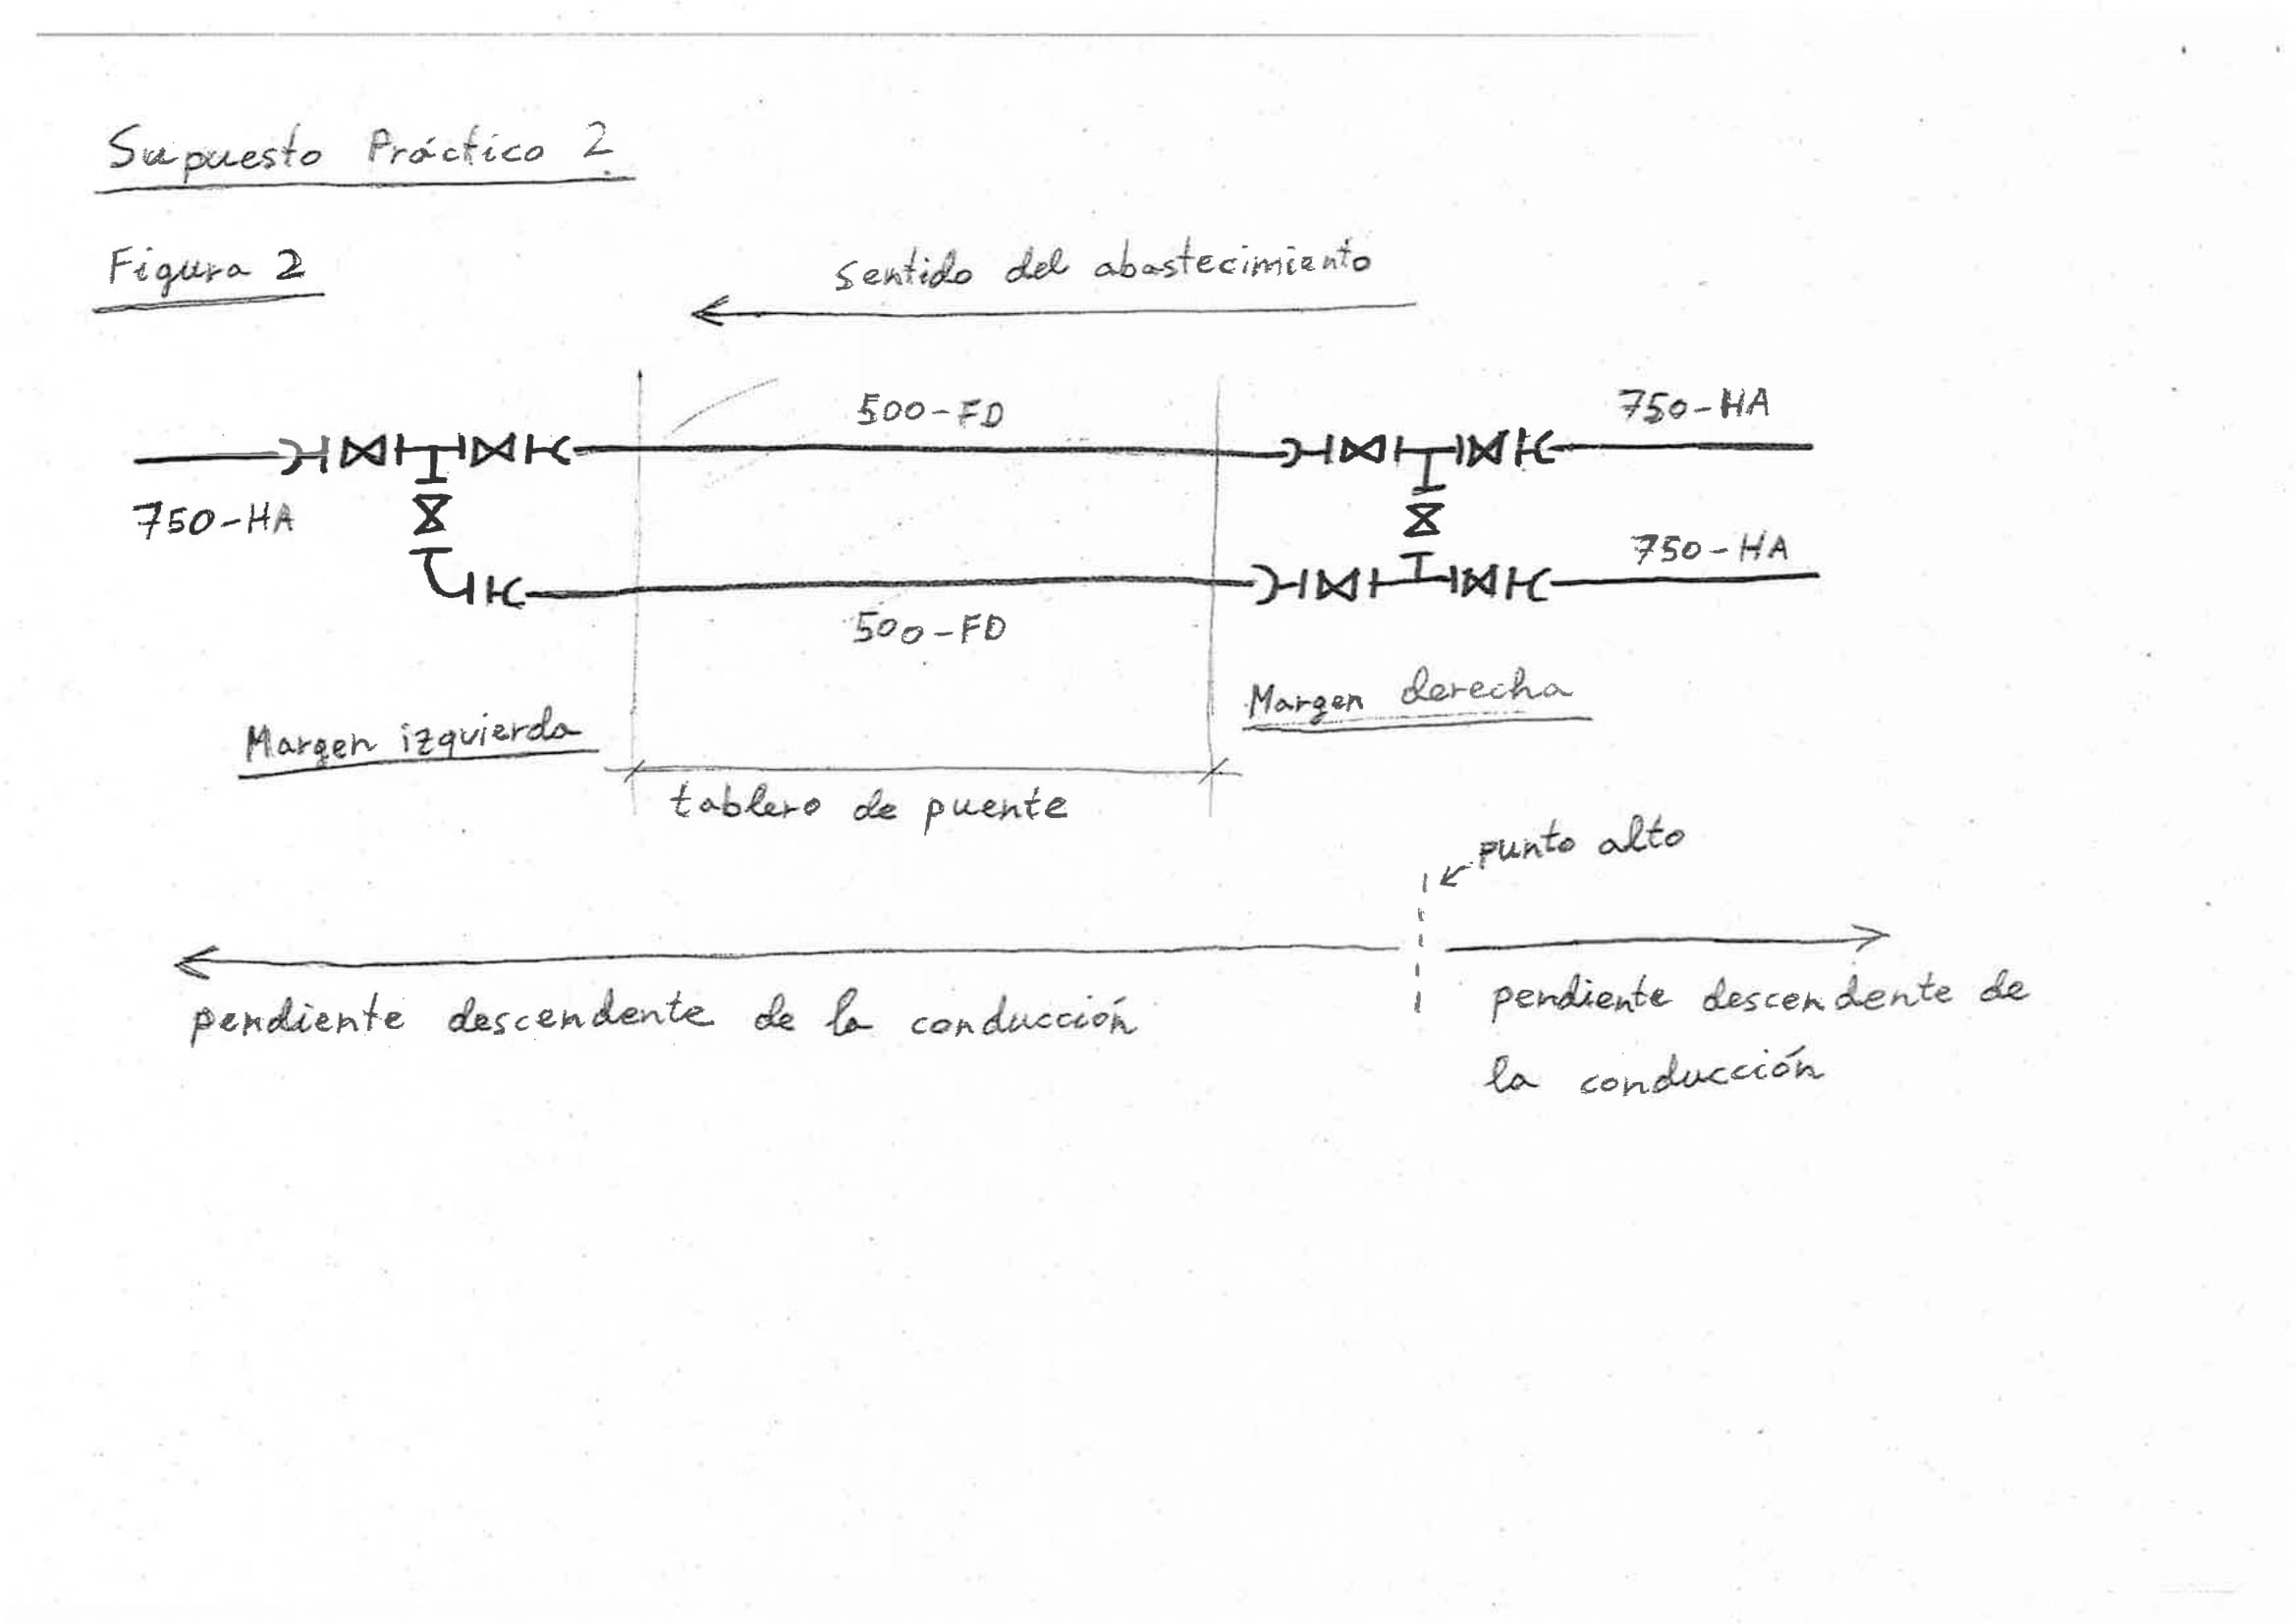 Supuesto Práctico 2
Figura 2
sentido del abastecimiento
500-FD
750-HA
750-HA
750-HA
500-FD
Margen derecha
Margen izquierda
tablero de puente
punto alto
pendiente descendente de la conducción
pendiente descendente de
la conducción